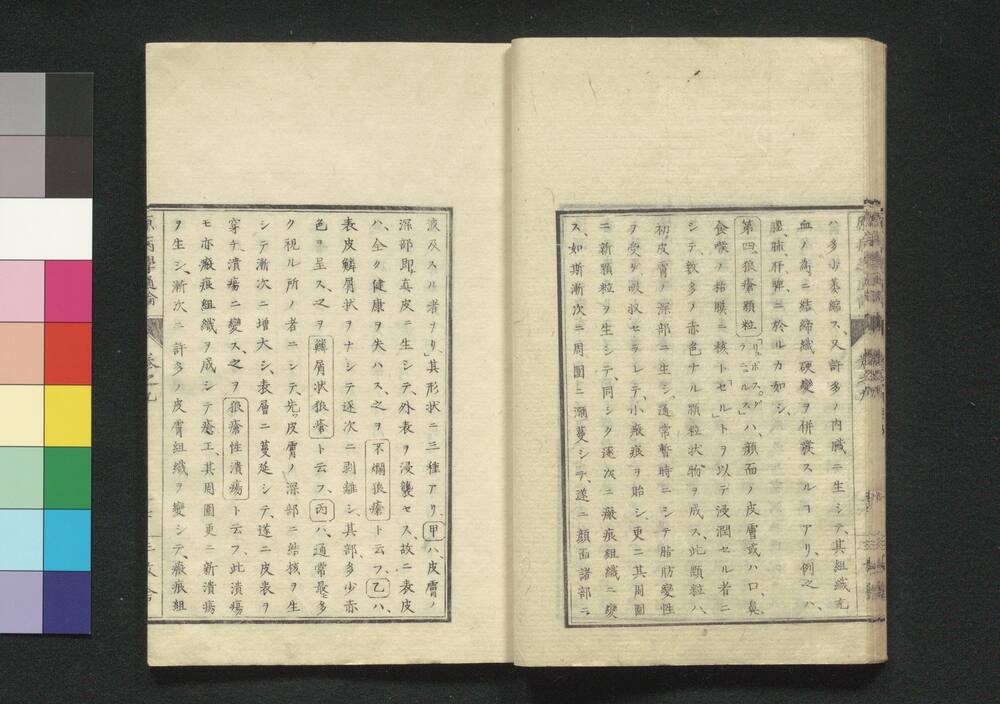 ハ多少萎縮ス、又許多ノ内臓ニ生シテ、其組織充
血ノ為ニ結締織硬變ヲ併發スルコアリ、例之ハ、
肺、肝、脾ニ於ルカ如シ、
第四狼瘡顆粒「リュポスグラニュルス」ハ、顔面ノ皮膚或ハ口、鼻、
食喉ノ粘膜ニ核ト「セル」トヲ以テ浸潤セル者ニ
シテ、数多ノ赤色ナル顆粒状物ヲ成ス、此顆粒ハ、
初皮膚ノ深部ニ生シ、通常暫時ニシテ脂肪變性
ヲ受ケ吸收セラレテ、小瘢痕ヲ貽シ、更ニ其周圍
ニ新顆粒ヲ生シテ、同シク逐次ニ瘢痕組織ニ變
ス、如斯漸次ニ周圍ニ瀰蔓シテ、遂ニ顔面諸部ニ
波及スル者ナリ」其形状ニ三種アリ、甲ハ、皮膚ノ
深部即真皮ニ生シテ、外表ヲ浸襲セス、故ニ表皮
ハ、全ク健康ヲ失ハス、之ヲ不爛狼瘡ト云フ、乙ハ、
表皮鱗屑状ヲナシテ逐次ニ剥離シ、其部、多少赤
色ヲ呈ス、之ヲ鱗屑状狼瘡ト云フ、丙ハ、通常最多
ク視ル所ノ者ニシテ、先ッ皮膚ノ深部ニ結核ヲ生
シテ漸次ニ増大シ、表層ニ蔓延シテ、遂ニ皮表ヲ
穿チ、潰瘍ニ變ス、之ヲ狼瘡性潰瘍ト云フ、此潰瘍
モ亦瘢痕組織ヲ成シテ癒工、其周圍更ニ新潰瘍
ヲ生シ、漸次ニ許多ノ皮膚組織ヲ變シテ、瘢痕組
原病學通論